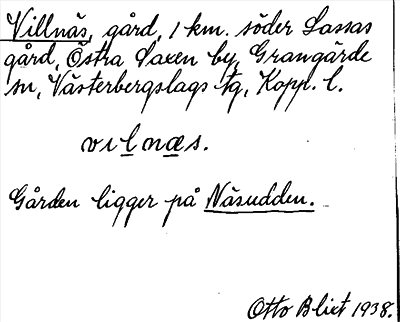 Villnäs, gård, 1 km. söder Lassas
gård, Östra Saxen by, Grangärde
sn, Västerbergslags tg, Kopp. l.
vilnæs.
Gården ligger på Näsudden.
Otto Blixt 1938.